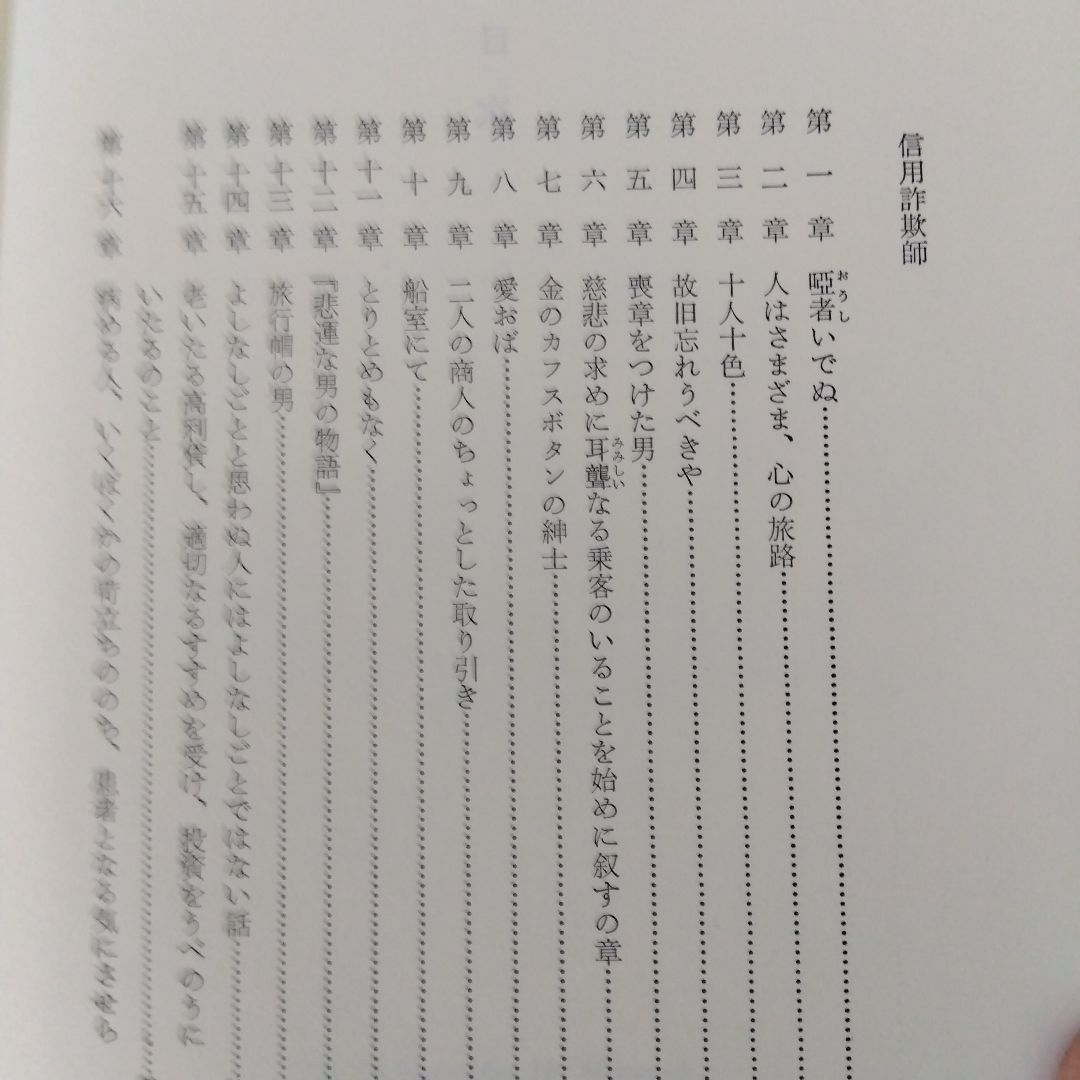 信用詐欺師
第一章 啞者いでぬ
おうし
第二章 人はさまざま、心の旅路
第三章 十人十色
第四章 故旧忘れうべきや
第五章 喪章をつけた男
第六章 慈悲の求めに耳聾なる乗客のいることを始めに叙すの章
みみしい
第七章 金のカフスボタンの紳士
第八章 愛おば
第九章 二人の商人のちょっとした取り引き
第十章 船室にて
第十一章 とりとめもなく
第十二章 『悲運な男の物語』
第十三章 旅行帽の男
第十四章 よしなしごとと思わぬ人にはよしなしごとではない話
第十五章 老いたる高利貸し、適切なるすすめを受け、投資をうべのうに
いたるのこと
第十六章 病める人、いくばくかの苛立ちののち、患者となる気にさせら